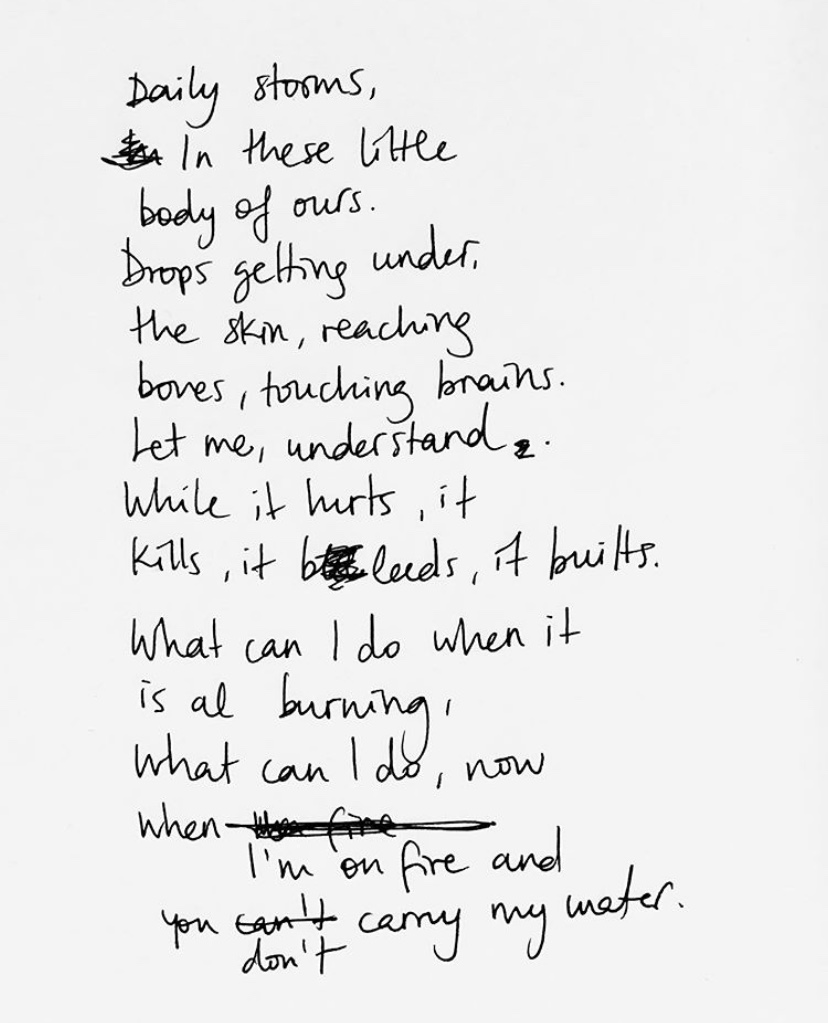 Daily storms,
In these little
body of ours.
Drops getting under,
the skin, reaching
bones, touching brains.
Let me, understand.
While it hurts, it
kills, it bleeds, it builts.
What can I do when it
is al burning,
What can I do, now
when
I'm on fire and
you can't carry my water.
don't